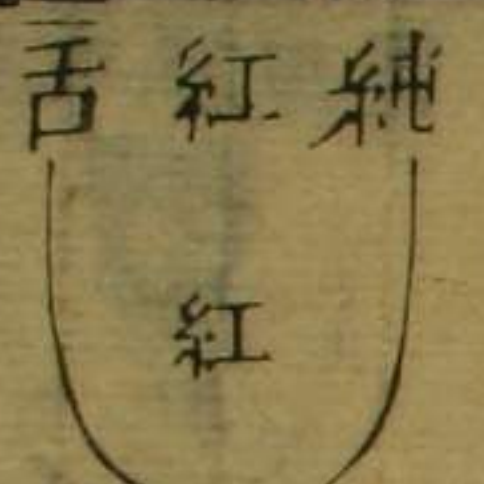 純紅舌
紅